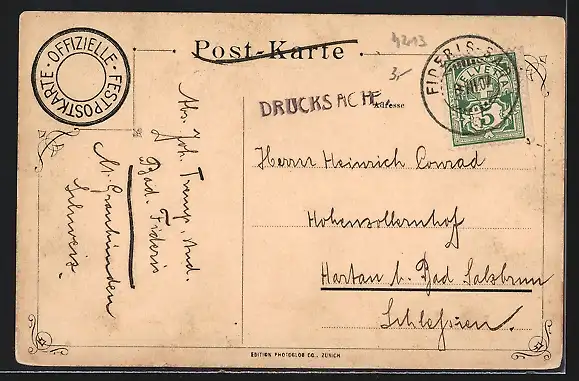 OFFIZIELLE · FESTPOSTKARTE ·
Post-Karte
4213
3,-
DRUCKSACHE.
Adresse
FIDERIS-S
HELVETIA
5
Herrn Heinrich Conrad
Hohenzollernhof
Hartau b. Bad Salzbrunn
Schlesien.
Abs. Joh. Tramp, stud.
Bad. Fideris
Kt. Graubünden
Schweiz.
EDITION PHOTOGLOB CO., ZÜRICH